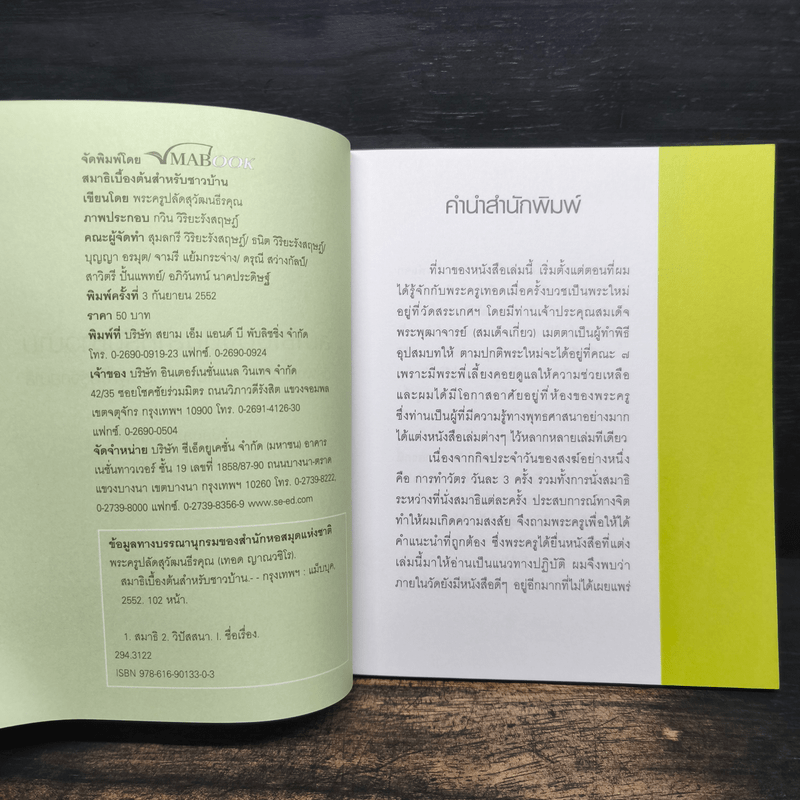 จัดพิมพ์โดย MABOOK
สมาธิเบื้องต้นสำหรับชาวบ้าน
เขียนโดย พระครูปลัดสุวัฒนธีรคุณ
ภาพประกอบ กวิน วิริยะรังสฤษฎ์
คณะผู้จัดทำ สุมลกรี วิริยะรังสฤษฎ์/ ธนิต วิริยะรังสฤษฎ์/
บุญญา อรมุต/ จามรี แย้มกระจ่าง/ ดรุณี สว่างกัลป์/
สาวิตรี ปั้นแพทย์/ อภิวันทน์ นาคประดิษฐ์
พิมพ์ครั้งที่ 3 กันยายน 2552
ราคา 50 บาท
พิมพ์ที่ บริษัท สยาม เอ็ม แอนด์ บี พับลิชชิ่ง จำกัด
โทร. 0-2690-0919-23 แฟกซ์. 0-2690-0924
เจ้าของ บริษัท อินเตอร์เนชั่นแนล วินเทจ จำกัด
42/35 ซอยโชคชัยร่วมมิตร ถนนวิภาวดีรังสิต แขวงจอมพล
เขตจตุจักร กรุงเทพฯ 10900 โทร. 0-2691-4126-30
แฟกซ์. 0-2690-0504
จัดจำหน่าย บริษัท ซีเอ็ดยูเคชั่น จำกัด (มหาชน) อาคาร
เนชั่นทาวเวอร์ ชั้น 19 เลขที่ 1858/87-90 ถนนบางนา-ตราด
แขวงบางนา เขตบางนา กรุงเทพฯ 10260 โทร. 0-2739-8222,
0-2739-8000 แฟกซ์. 0-2739-8356-9 www.se-ed.com
ข้อมูลทางบรรณานุกรมของสำนักหอสมุดแห่งชาติ
พระครูปลัดสุวัฒนธีรคุณ (เทอด ญาณวชิโร).
สมาธิเบื้องต้นสำหรับชาวบ้าน.- - กรุงเทพฯ : แม็บบุค,
2552. 102 หน้า.
1. สมาธิ 2. วิปัสสนา. I. ชื่อเรื่อง.
294.3122
ISBN 978-616-90133-0-3
คำนำสำนักพิมพ์
ที่มาของหนังสือเล่มนี้ เริ่มตั้งแต่ตอนที่ผม
ได้รู้จักกับพระครูเทอดเมื่อครั้งบวชเป็นพระใหม่
อยู่ที่วัดสระเกศฯ โดยมีท่านเจ้าประคุณสมเด็จ
พระพุฒาจารย์ (สมเด็จเกี่ยว) เมตตาเป็นผู้ทำพิธี
อุปสมบทให้ ตามปกติพระใหม่จะได้อยู่ที่คณะ ๗
เพราะมีพระพี่เลี้ยงคอยดูแลให้ความช่วยเหลือ
และผมได้มีโอกาสอาศัยอยู่ที่ห้องของพระครู
ซึ่งท่านเป็นผู้ที่มีความรู้ทางพุทธศาสนาอย่างมาก
ได้แต่งหนังสือเล่มต่างๆ ไว้หลากหลายเล่มทีเดียว
เนื่องจากกิจประจำวันของสงฆ์อย่างหนึ่ง
คือ การทำวัตร วันละ 3 ครั้ง รวมทั้งการนั่งสมาธิ
ระหว่างที่นั่งสมาธิแต่ละครั้ง ประสบการณ์ทางจิต
ทำให้ผมเกิดความสงสัย จึงถามพระครูเพื่อให้ได้
คำแนะนำที่ถูกต้อง ซึ่งพระครูได้ยื่นหนังสือที่แต่ง
เล่มนี้มาให้อ่านเป็นแนวทางปฏิบัติ ผมจึงพบว่า
ภายในวัดยังมีหนังสือดีๆ อยู่อีกมากที่ไม่ได้เผยแพร่